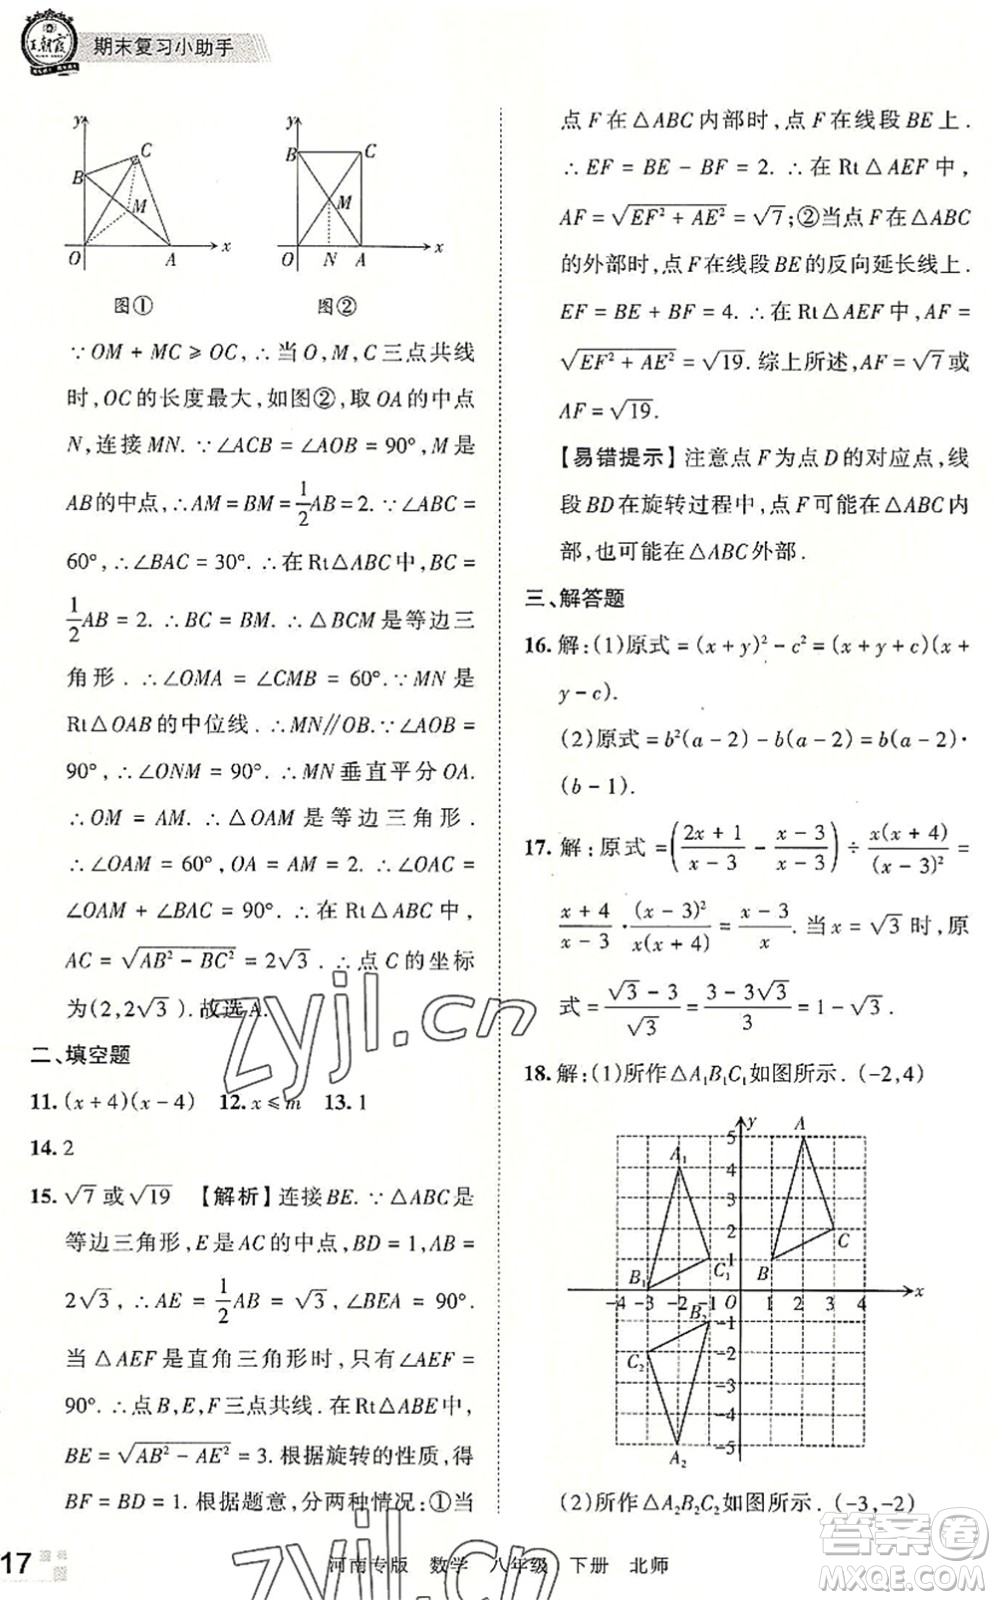 王朝霞
期末复习小助手
y
B
C
M
O
A
x
图①
y
B
C
M
O
N
A
x
图②
∵OM + MC ⩾ OC,∴当 O,M,C 三点共线
时,OC的长度最大,如图②,取OA的中点
N,连接 MN. ∵∠ACB = ∠AOB = 90°,M 是
AB的中点,∴AM = BM = 1/2 AB = 2. ∵∠ABC =
60°,∴∠BAC = 30°.∴在Rt△ABC中,BC =
1/2 AB = 2. ∴BC = BM. ∴△BCM 是等边三
角形.∴∠OMA = ∠CMB = 60°.∵MN 是
Rt△OAB的中位线.∴MN∥OB.∵∠AOB =
90°,∴∠ONM = 90°.∴MN垂直平分OA.
∴OM = AM. ∴△OAM 是等边三角形.
∴∠OAM = 60°,OA = AM = 2. ∴∠OAC =
∠OAM + ∠BAC = 90°.∴在 Rt△OAC 中,
AC = √(AB² − BC²) = 2√3.∴点C的坐标
为(2,2√3).故选A.
二、填空题
11. (x + 4)(x − 4) 12. x ⩽ m 13. 1
14. 2
15. √7或√19 【解析】连接BE.∵△ABC是
等边三角形,E是AC的中点,BD = 1,AB =
2√3,∴AE = 1/2 AB = √3,∠BEA = 90°.
当△AEF是直角三角形时,只有∠AEF =
90°.∴点B,E,F三点共线.在Rt△ABE中,
BE = √(AB² − AE²) = 3. 根据旋转的性质,得
BF = BD = 1. 根据题意,分两种情况:①当
点 F 在△ABC 内部时,点 F 在线段 BE 上.
∴EF = BE − BF = 2. ∴在 Rt△AEF 中,
AF = √(EF² + AE²) = √7;②当点 F 在△ABC
的外部时,点F在线段BE的反向延长线上.
EF = BE + BF = 4. ∴在 Rt△AEF 中,AF =
√(EF² + AE²) = √19. 综上所述,AF = √7 或
AF = √19.
【易错提示】注意点 F 为点 D 的对应点,线
段 BD 在旋转过程中,点 F 可能在△ABC 内
部,也可能在△ABC外部.
三、解答题
16. 解:(1)原式 = (x + y)² − c² = (x + y + c)(x +
y − c).
(2)原式 = b²(a − 2) − b(a − 2) = b(a − 2)·
(b − 1).
17. 解:原式 = ((2x + 1)/(x − 3) − (x − 3)/(x − 3)) ÷ x(x + 4)/(x − 3)² =
(x + 4)/(x − 3) · (x − 3)²/x(x + 4) = (x − 3)/x. 当 x = √3 时,原
式 = (√3 − 3)/√3 = (3 − 3√3)/3 = 1 − √3.
18. 解:(1)所作△A₁B₁C₁如图所示.(−2,4)
y
A
5
A₁
4
3
2
C
1
B₁
C₁
B
−4 −3 −2 −1 O 1 2 3 4 x
B₂
−1
C₂
−2
−3
−4
A₂
−5
(2)所作△A₂B₂C₂如图所示.(−3,−2)
17
河南专版 数学 八年级 下册 北师
zyjl.cn
zyjl.cn
答案圈
MXQE.COM